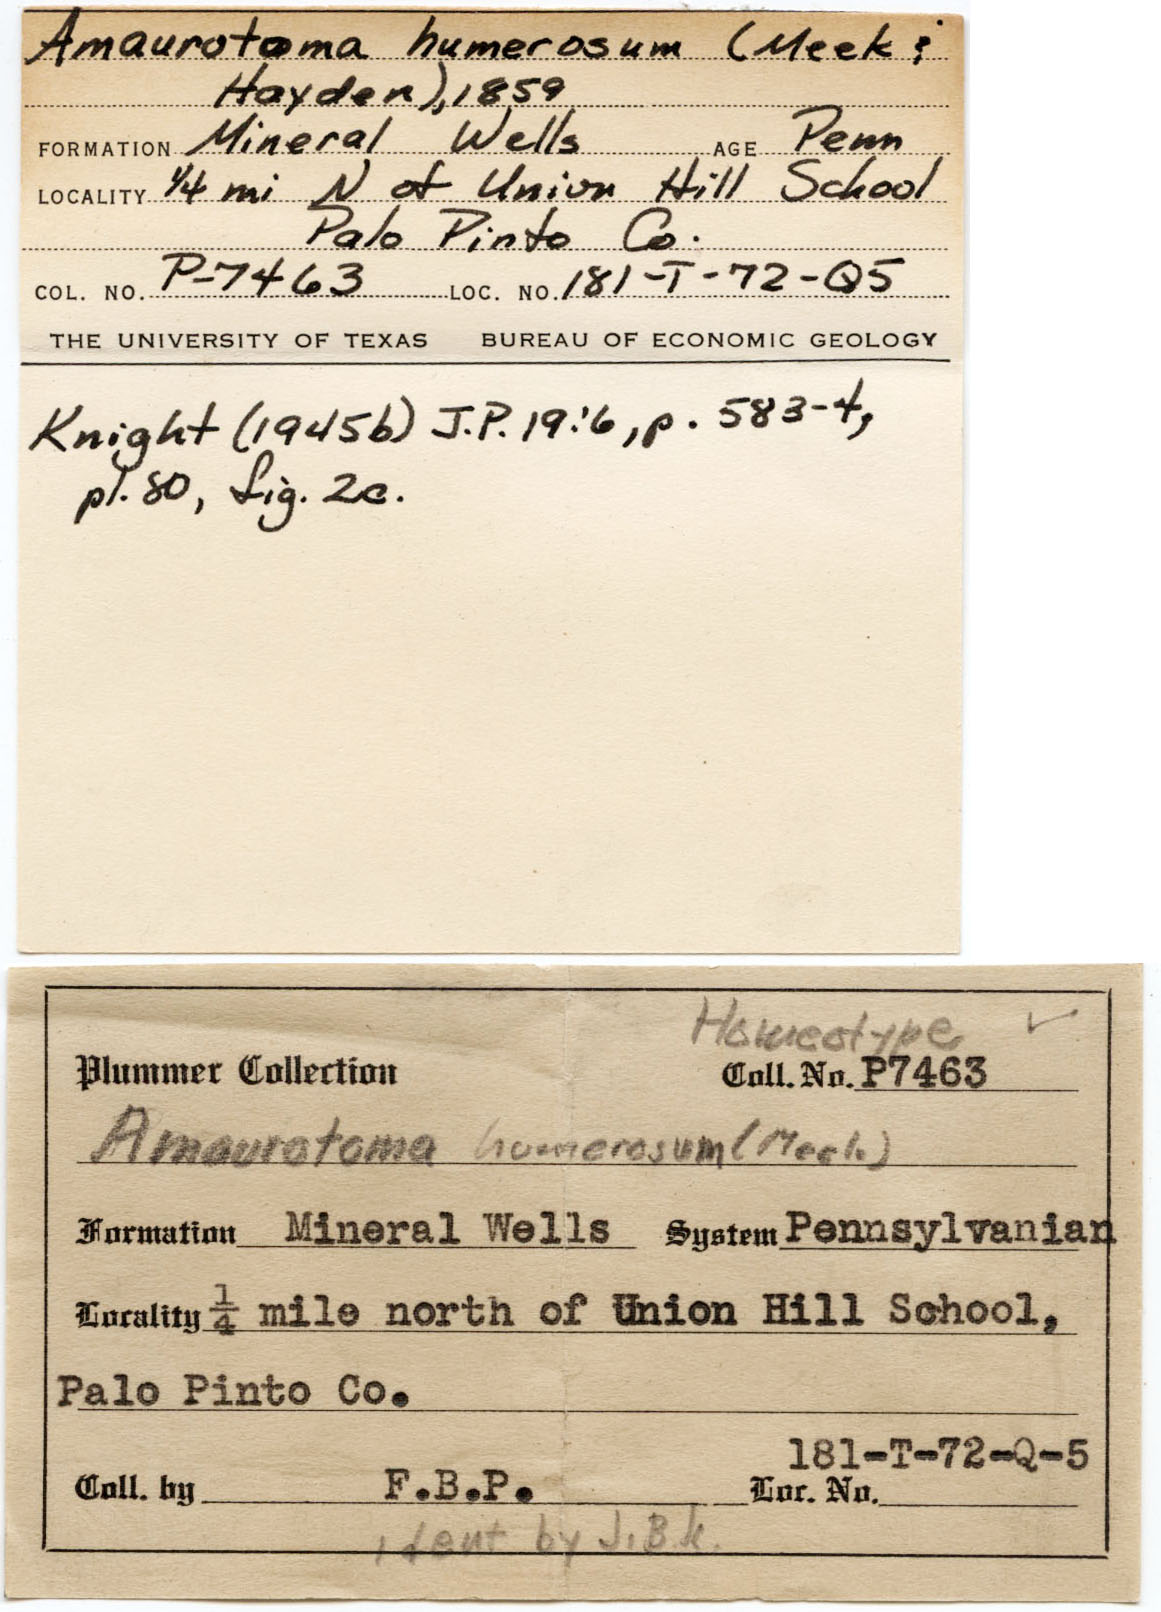 Amaurotoma humerosum (Meek &
Hayden), 1859
FORMATION Mineral Wells AGE Penn
LOCALITY 1/4 mi N of Union Hill School
Palo Pinto Co.
COL. NO. P-7463 LOC. NO. 181-T-72-Q5
THE UNIVERSITY OF TEXAS BUREAU OF ECONOMIC GEOLOGY
Knight (1945b) J.P. 19:6, p. 583-4,
pl. 80, fig. 2c.
Homeotype ✓
Plummer Collection Coll. No. P7463
Amaurotoma humerosum (Meek)
Formation Mineral Wells System Pennsylvanian
Locality 1/4 mile north of Union Hill School,
Palo Pinto Co.
181-T-72-Q-5
Coll. by F.B.P. Loc. No.
ident by J.B.K.